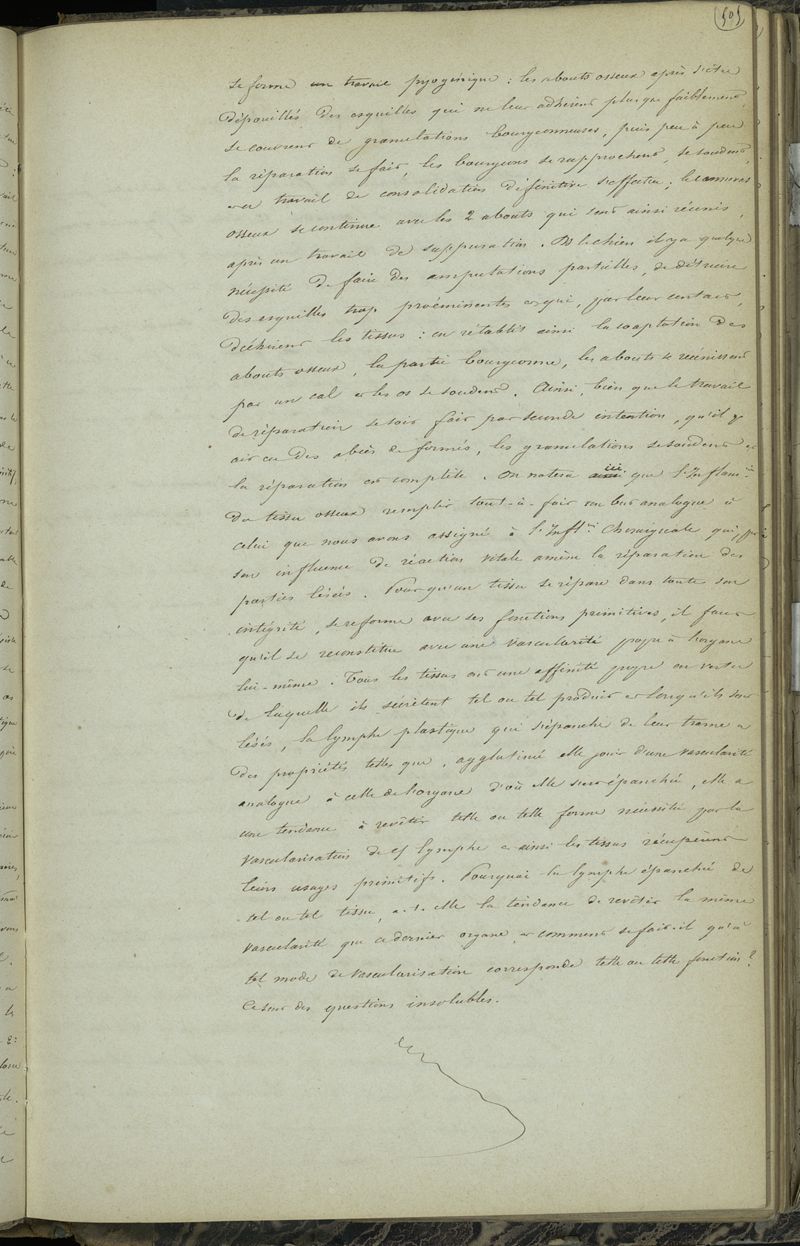 505
se forme un travail pyogénique : les abouts osseux après s'être
dépouillés des esquilles qui ne leur adhèrent plus que faiblement,
se couvrent de granulations bourgeonneuses, puis peu à peu
la réparation se fait, les bourgeons se rapprochent, se soudent,
et ce travail de consolidation définitive s'effectue ; le
osseux se continue avec les 2 abouts qui sont ainsi réunis,
après un travail de suppuration. Ds le chien il y a quelque
nécessité de faire des amputations partielles, de détruire
des esquilles trop proéminentes et qui, par leur contact,
déchirent les tissus : on rétablit ainsi la coaptation des
abouts osseux, la partie bourgeonne, les abouts se réunissent
par un cal et les os se soudent. Ainsi, bien que le travail
de réparation se soit fait par seconde intention, qu'il y
ait eu des abcès de formés, les granulations se soudent et
la réparation est complète. On notera ici que l'Inflamon
du tissu osseux remplit tout-à-fait un but analogue à
celui que nous avons assigné à l'Inflon Chirurgicale qui, par
son influence de réaction vitale amène la réparation des
parties lésées. Pour qu'un tissu se répare dans toute son
intégrité, se reforme avec ses fonctions primitives, il faut
qu'il se reconstitue avec une vascularité propre à l'organe
lui-même. Tous les tissus ont une affinité propre en vertu
de laquelle ils sécrètent tel ou tel produit et lorsqu'ils sont
lésés, la lymphe plastique qui s'épanche de leur trame a
des propriétés telles que, agglutiné elle jouit d'une vascularité
analogue à celle de l'organe d'où elle s'est épanchée, elle a
une tendance à revêtir telle ou telle forme nécessitée par la
vascularisation de cette lymphe et ainsi les tissus récupèrent
leurs usages primitifs. Pourquoi la lymphe épanchée de
tel ou tel tissu, a-t-elle la tendance de revêtir la même
vascularité que ce dernier organe, et comment se fait-il qu'à
tel mode de vascularisation corresponde telle ou telle fonction ?
Ce sont des questions insolubles.